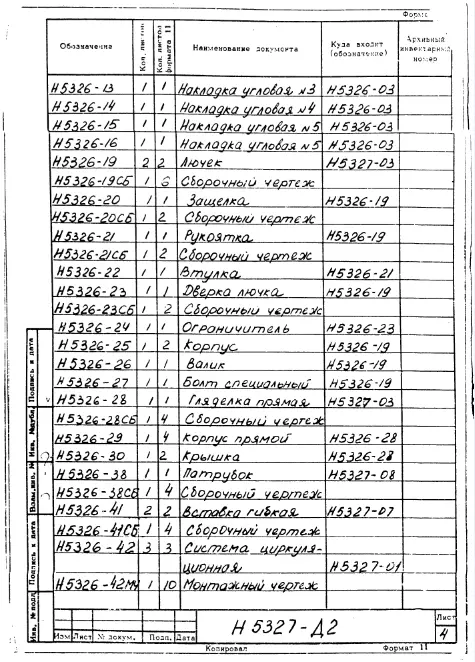 Форма
Обозначение Кол. листов Кол. листов формата 11 Наименование документа Куда входит (обозначение) Архивный инвентарный номер
Н5326-13 1 1 Накладка угловая №3 Н5326-03
Н5326-14 1 1 Накладка угловая №4 Н5326-03
Н5326-15 1 1 Накладка угловая №5 Н5326-03
Н5326-16 1 1 Накладка угловая №5 Н5326-03
Н5326-19 2 2 Лючек Н5327-03
Н5326-19СБ 1 6 Сборочный чертеж
Н5326-20 1 1 Защелка Н5326-19
Н5326-20СБ 1 2 Сборочный чертеж
Н5326-21 1 1 Рукоятка Н5326-19
Н5326-21СБ 1 2 Сборочный чертеж
Н5326-22 1 1 Втулка Н5326-21
Н5326-23 1 1 Дверка лючка Н5326-19
Н5326-23СБ 2 Сборочный чертеж
Н5326-24 1 1 Ограничитель Н5326-23
Н5326-25 1 2 Корпус Н5326-19
Н5326-26 1 1 Валик Н5326-19
Н5326-27 1 1 Болт специальный Н5326-19
Н5326-28 1 1 Гляделка прямая Н5327-03
Н5326-28СБ 1 4 Сборочный чертеж
Н5326-29 1 4 корпус прямой Н5326-28
Н5326-30 1 2 Крышка Н5326-28
Н5326-38 1 1 Патрубок Н5327-08
Н5326-38СБ 1 4 Сборочный чертеж
Н5326-41 2 2 Вставка гибкая Н5327-07
Н5326-41СБ 1 4 Сборочный чертеж
Н5326-42 3 3 Система циркуля-
ционная Н5327-01
Н5326-42МЧ 1 10 Монтажный чертеж
Инв. № подл. Подпись и дата Взам. инв. № Инв. № дубл. Подпись и дата
Н5327-Д2
Лист
4
Изм Лист № докум. Подп. Дата
Копировал Формат 11